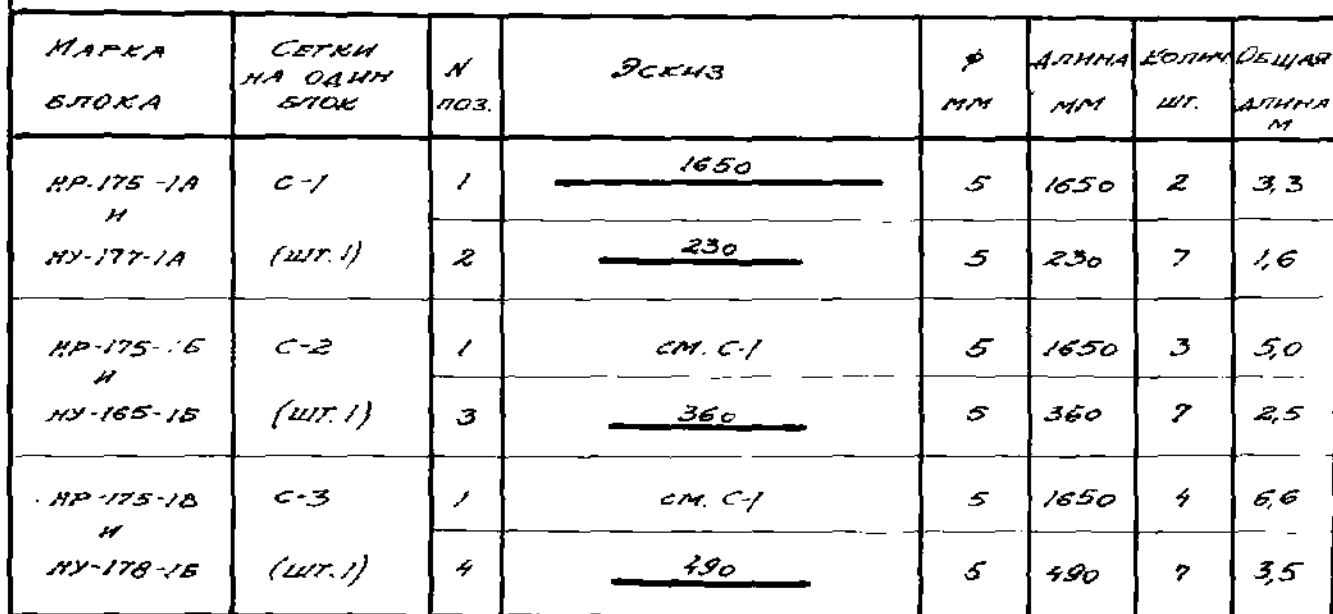 МАРКА БЛОКА | СЕТКИ НА ОДИН БЛОК | N ПОЗ. | ЭСКИЗ | Ф ММ | ДЛИНА ММ | КОЛИЧ ШТ. | ОБЩАЯ ДЛИНА М
НР-175-1А И НУ-177-1А | С-1 (ШТ. 1) | 1 | 1650 | 5 | 1650 | 2 | 3,3
2 | 230 | 5 | 230 | 7 | 1,6
НР-175-1Б И НУ-165-1Б | С-2 (ШТ. 1) | 1 | СМ. С-1 | 5 | 1650 | 3 | 5,0
3 | 360 | 5 | 360 | 7 | 2,5
НР-175-1В И НУ-178-1Б | С-3 (ШТ. 1) | 1 | СМ. С-1 | 5 | 1650 | 4 | 6,6
4 | 490 | 5 | 490 | 7 | 3,5